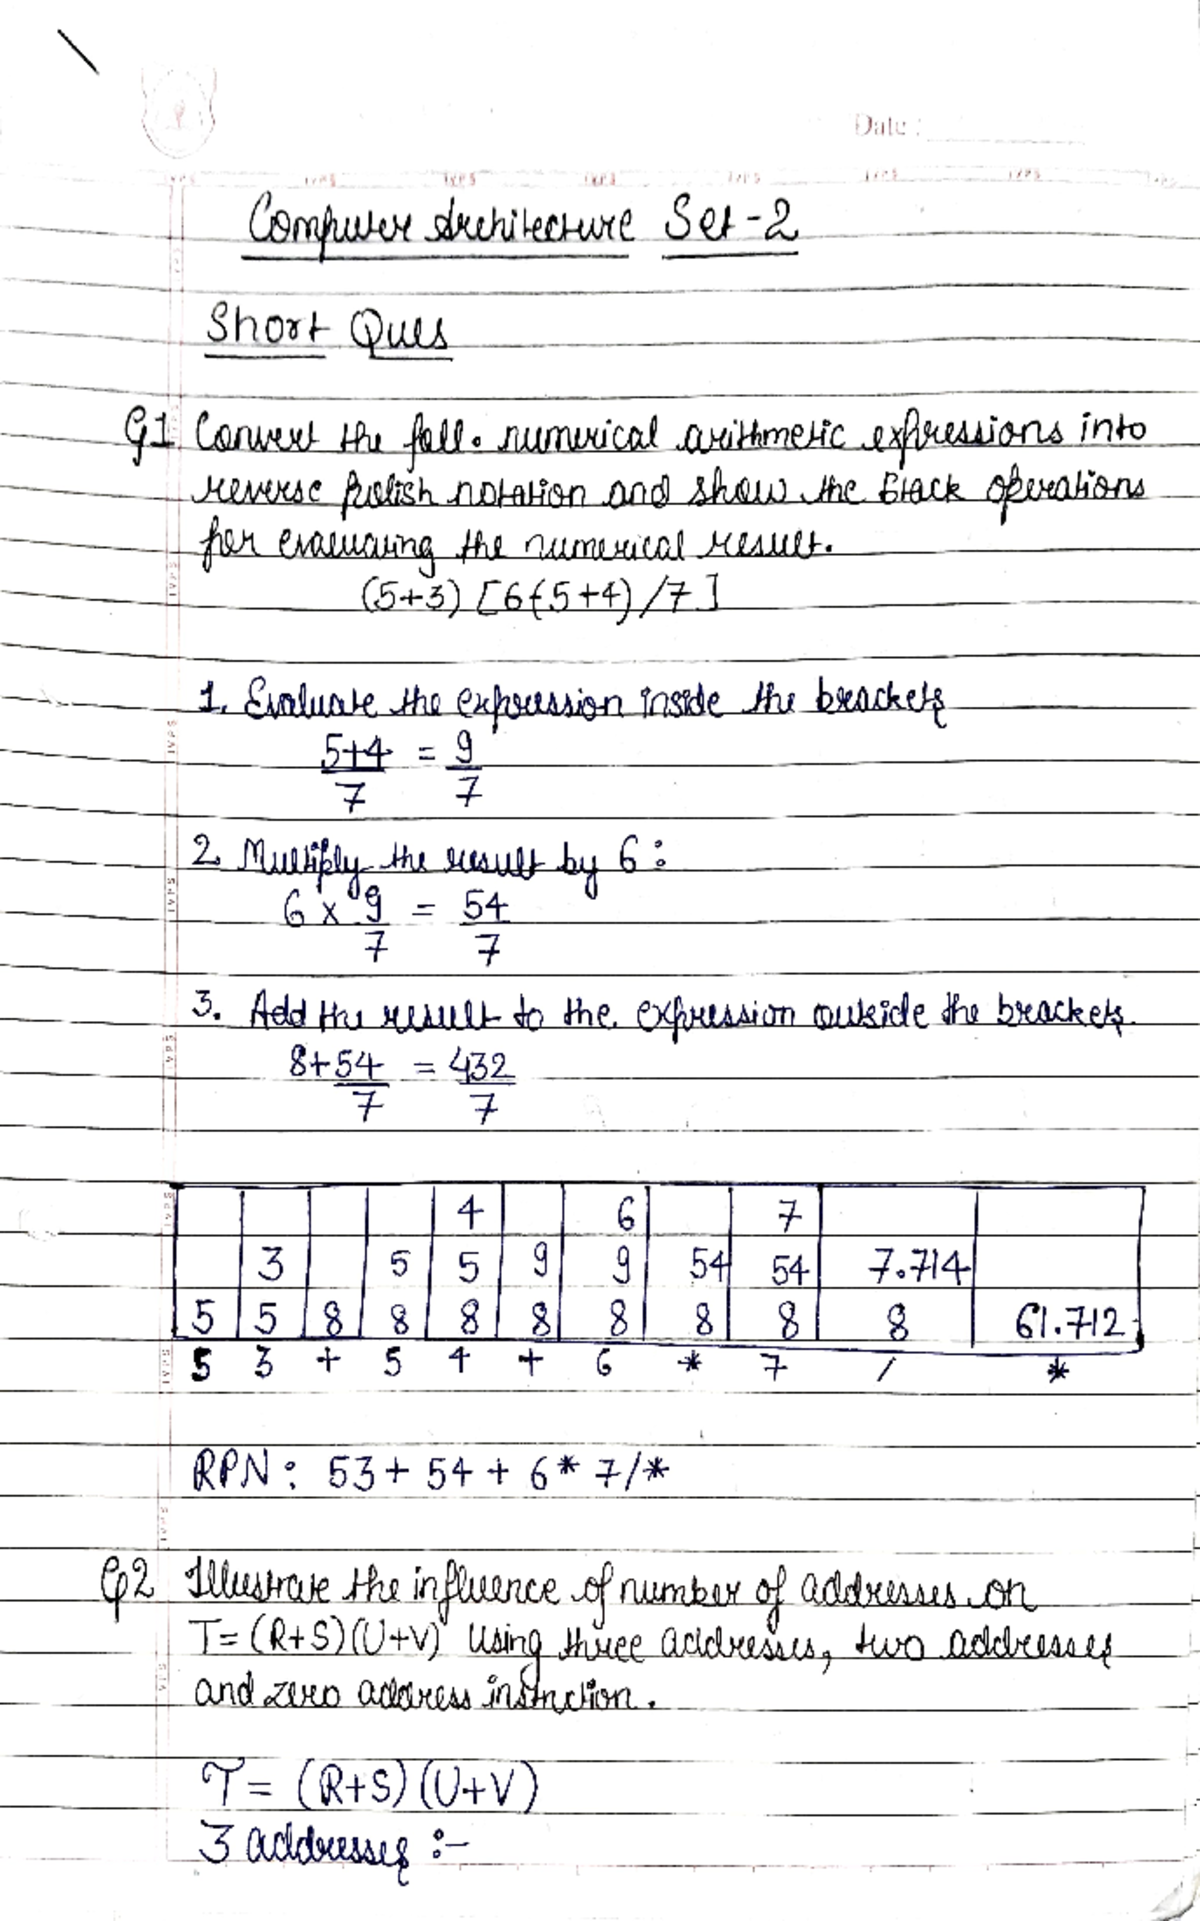 Date :
Computer Architecture Set-2
Short Ques
Q1 Convert the foll. numerical arithmetic expressions into
reverse polish notation and show the stack operations
for evaluating the numerical result.
(5+3) [6(5+4)/7]
1. Evaluate the expression inside the brackets
5+4/7 = 9/7
2. Multiply the result by 6:
6 x 9/7 = 54/7
3. Add the result to the expression outside the brackets.
8+54/7 = 432/7
4 6 7
3 5 5 9 9 54 54 7.714
5 5 8 8 8 8 8 8 8 8 61.712
5 3 + 5 4 + 6 * 7 / *
RPN: 53+ 54 + 6* 7/*
Q2 Illustrate the influence of number of addresses on
T= (R+S)(U+V) using three addresses, two addresses
and zero address instruction.
T = (R+S)(U+V)
3 addresses :-